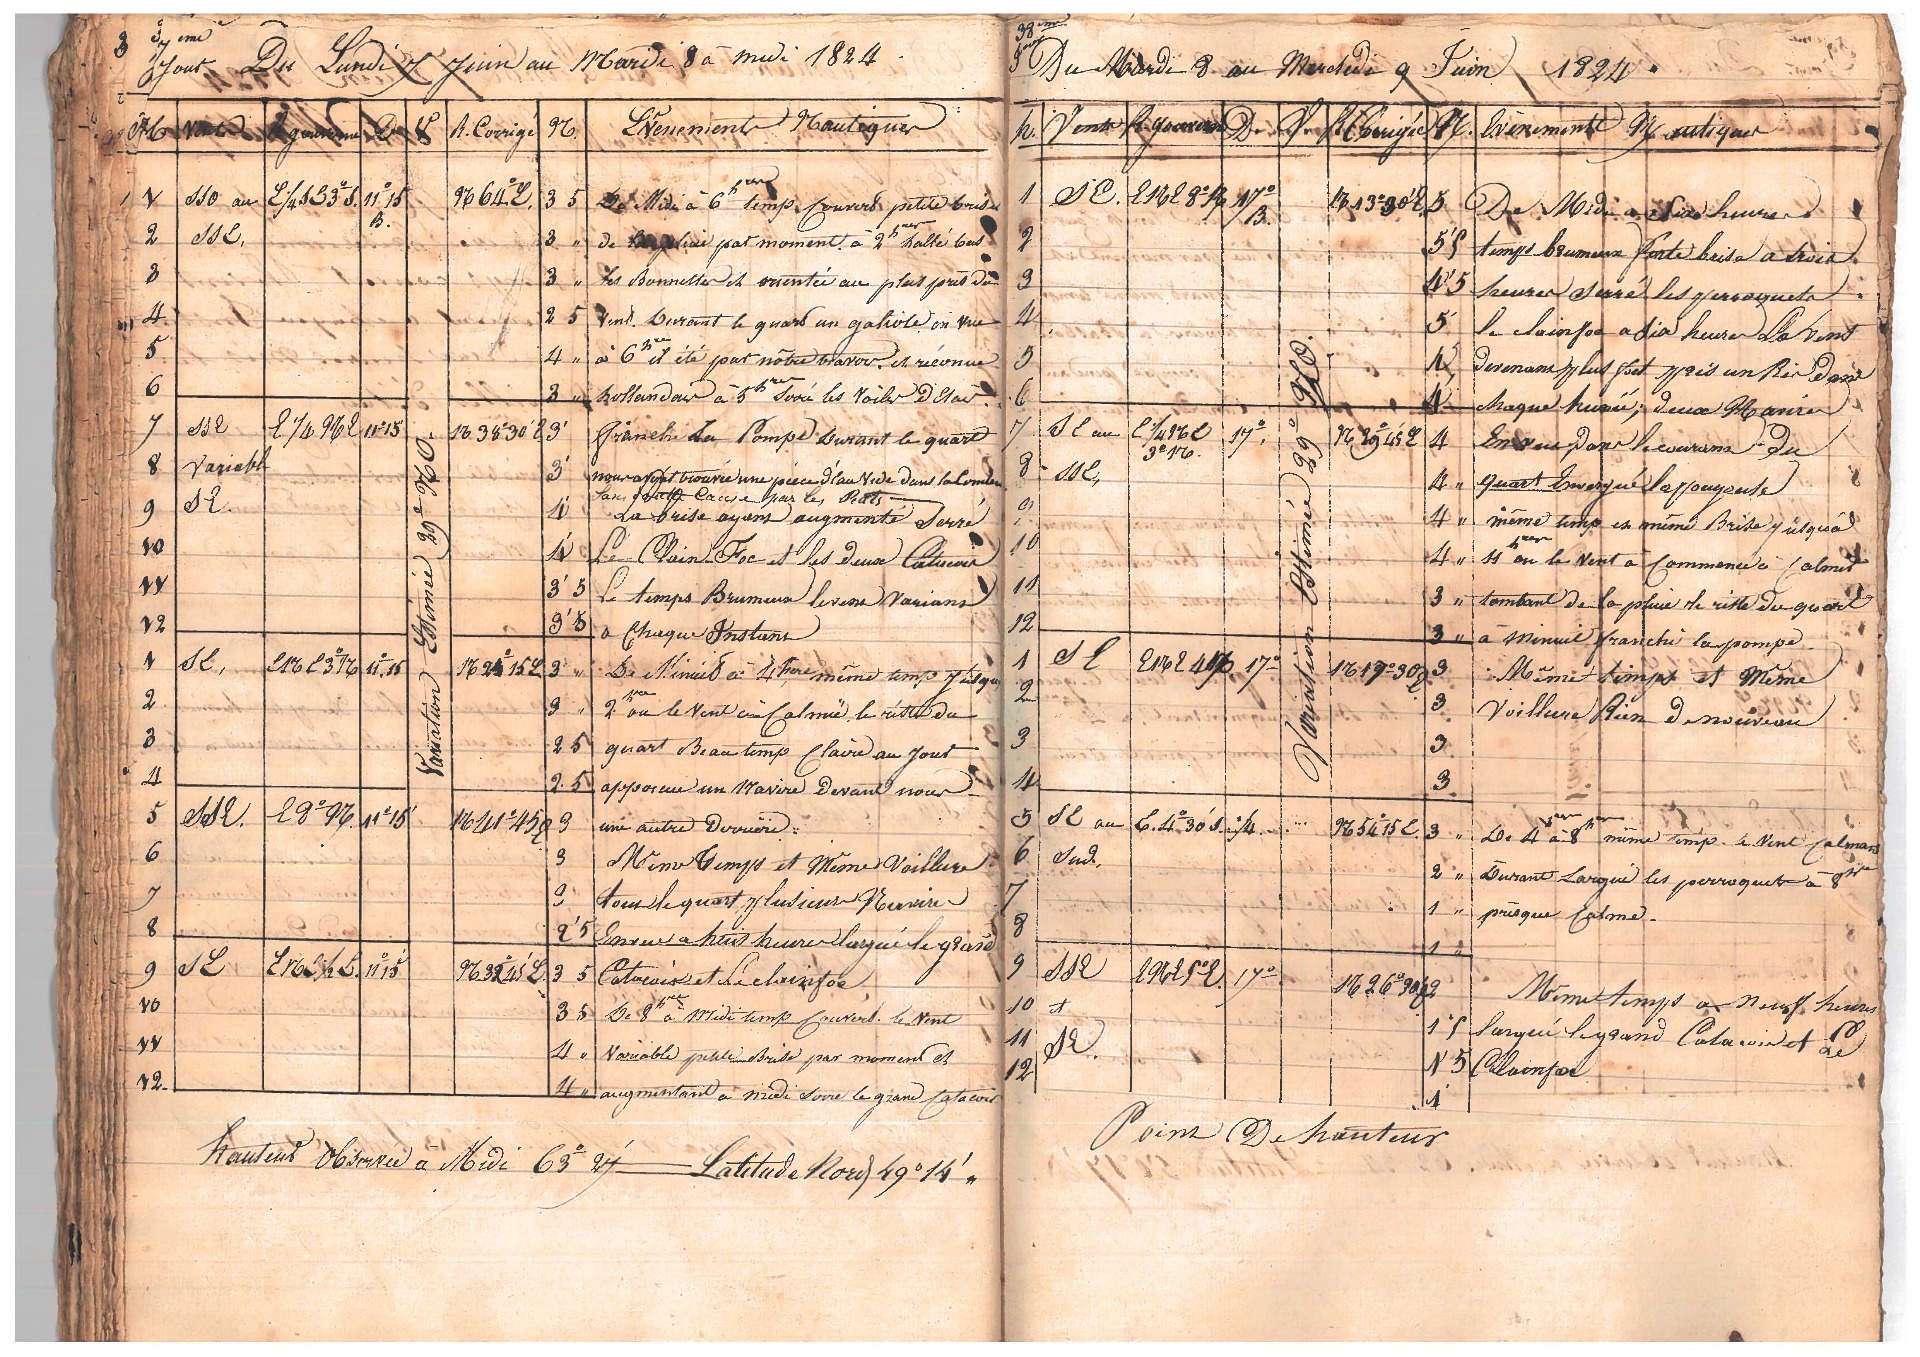 37eme Jour Du Lundi 7 Juin au Mardi 8 à midi 1824.
H Vents R. gouverne D V R. Corrigé N. Evenements Nautiques
1 SSO au E 1/4 SE 3° S. 11° 15 B. N 64° E. 3 5 De Midi à 6 hres temp Couvert petite brise
2 SSE, 3 „ de pluie par moment à 2 hres hallé bas
3 3 „ les Bonnettes et orientée au plus près du
4 2 5 Vent. Durant le quart un galiote en vue
5 4 „ à 6 hres il été par nôtre travers et réconnue
6 3 „ hollandais à 5 hres Serré les Voiles D'Etai.
7 SSE E 1/4 NE 11° 15 N 38° 30' E 3' franchi La Pompe Durant le quart
8 Variable 3' nous avont trouvée une pièce d'eau Vide dans la
Cause par les Rats
9 SE. 4' La brise ayant augmenté Serré
10 4' Le Clain-Foc et les deux Catacois
11 3' 5 Le temps Brumeux le vent Variant
12 3' 5 à Chaque Instant
Variation Estimé 29° NO.
1 SE, ENE 3° N 11° 15 N 24° 15 E 3 „ De Minuit à 4 hres même temp Jusqu'a
2 3 „ 2 hres ou le Vent à Calmée le reste du
3 2 5 quart Beau temp Claire au Jour
4 2 5 apperçue un Navire Devant nous
5 SSE. E 8° N. 11° 15' N 41° 45 E 3 une autre Derrière.
6 3 Même Temps et Même Voillure
7 3 tous le quart plusieurs Navires
8 2' 5 En vue a huit heures largué le grand
9 SE ENE 1/2 E. 11° 15 N 32° 45' E. 3 5 Catacois et le clainfoc
10 3 5 De 8 hres à Midi temp Couvert. le Vent
11 4 „ Variable petite Brise par moment et
12. 4 „ augmentant à midi Serré le grand Catacois
hauteur Observée à Midi 63° 27' Latitude Nord 49° 14' „
38eme Jour Du Mardi 8 au Mercredi 9 Juin 1824.
h. Vents R. gouverné D. V R Corrigée N. Evènements Nautiques
1 SE. ENE 8° N 17° B. N 13° 30' E. 5 De Midi a six heures
2 5' 5 temps brumeux forte brise a trois
3 4' 5 heures Serré les perroquets
4 5 le clainfoc a six heures Le Vent
5 devenant plus fort pris un Ris Dans
6 4 chaque hunié, deux Navires
7 SE au E 1/4 NE 3° N. 17°. N 29° 45' E 4 En vue dans le courant du
8 SSE, 4 „ quart Envergué
9 4 „ même temp et même Brise jusqu'à
10 4 „ 11 hres ou le Vent à Commencé à Calmer
11 3 „ tombant de la pluie le reste du quart
12 3 „ à minuit franchi la pompe.
Variation Estimée 29° NO.
1 SE ENE 4° N 17° N 17° 30' E 3 Même temps et Même
2 3 Voillure Rien De nouveau
3 3
4 3.
5 SE au E. 4° 30' S. N 54° 15 E. 3 „ De 4 hres à 8 hres même temp. le Vent Calmant
6 Sud. 2 „ Durant Largué les perroquets à 8 hres
7 1 „ presque Calme.
8 1 „
9 SSE ENE 5° E. 17° N 26° 30' E 2 Même temps a neuf heures
10 et 1' 5 largué le grand Catacois et Le
11 SE. 1 5 Clainfoc
12 1
Point De hauteur